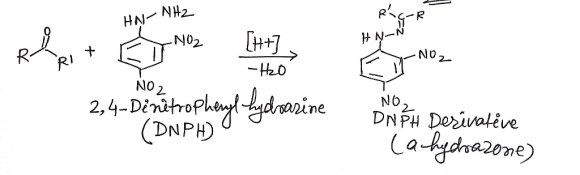 R O R' + HN-NH2 NO2 NO2 [H+] -H2O R' C R H N-N NO2 NO2
2,4-Dinitrophenyl hydrazine
(DNPH)
DNPH Derivative
(a-hydrazone)